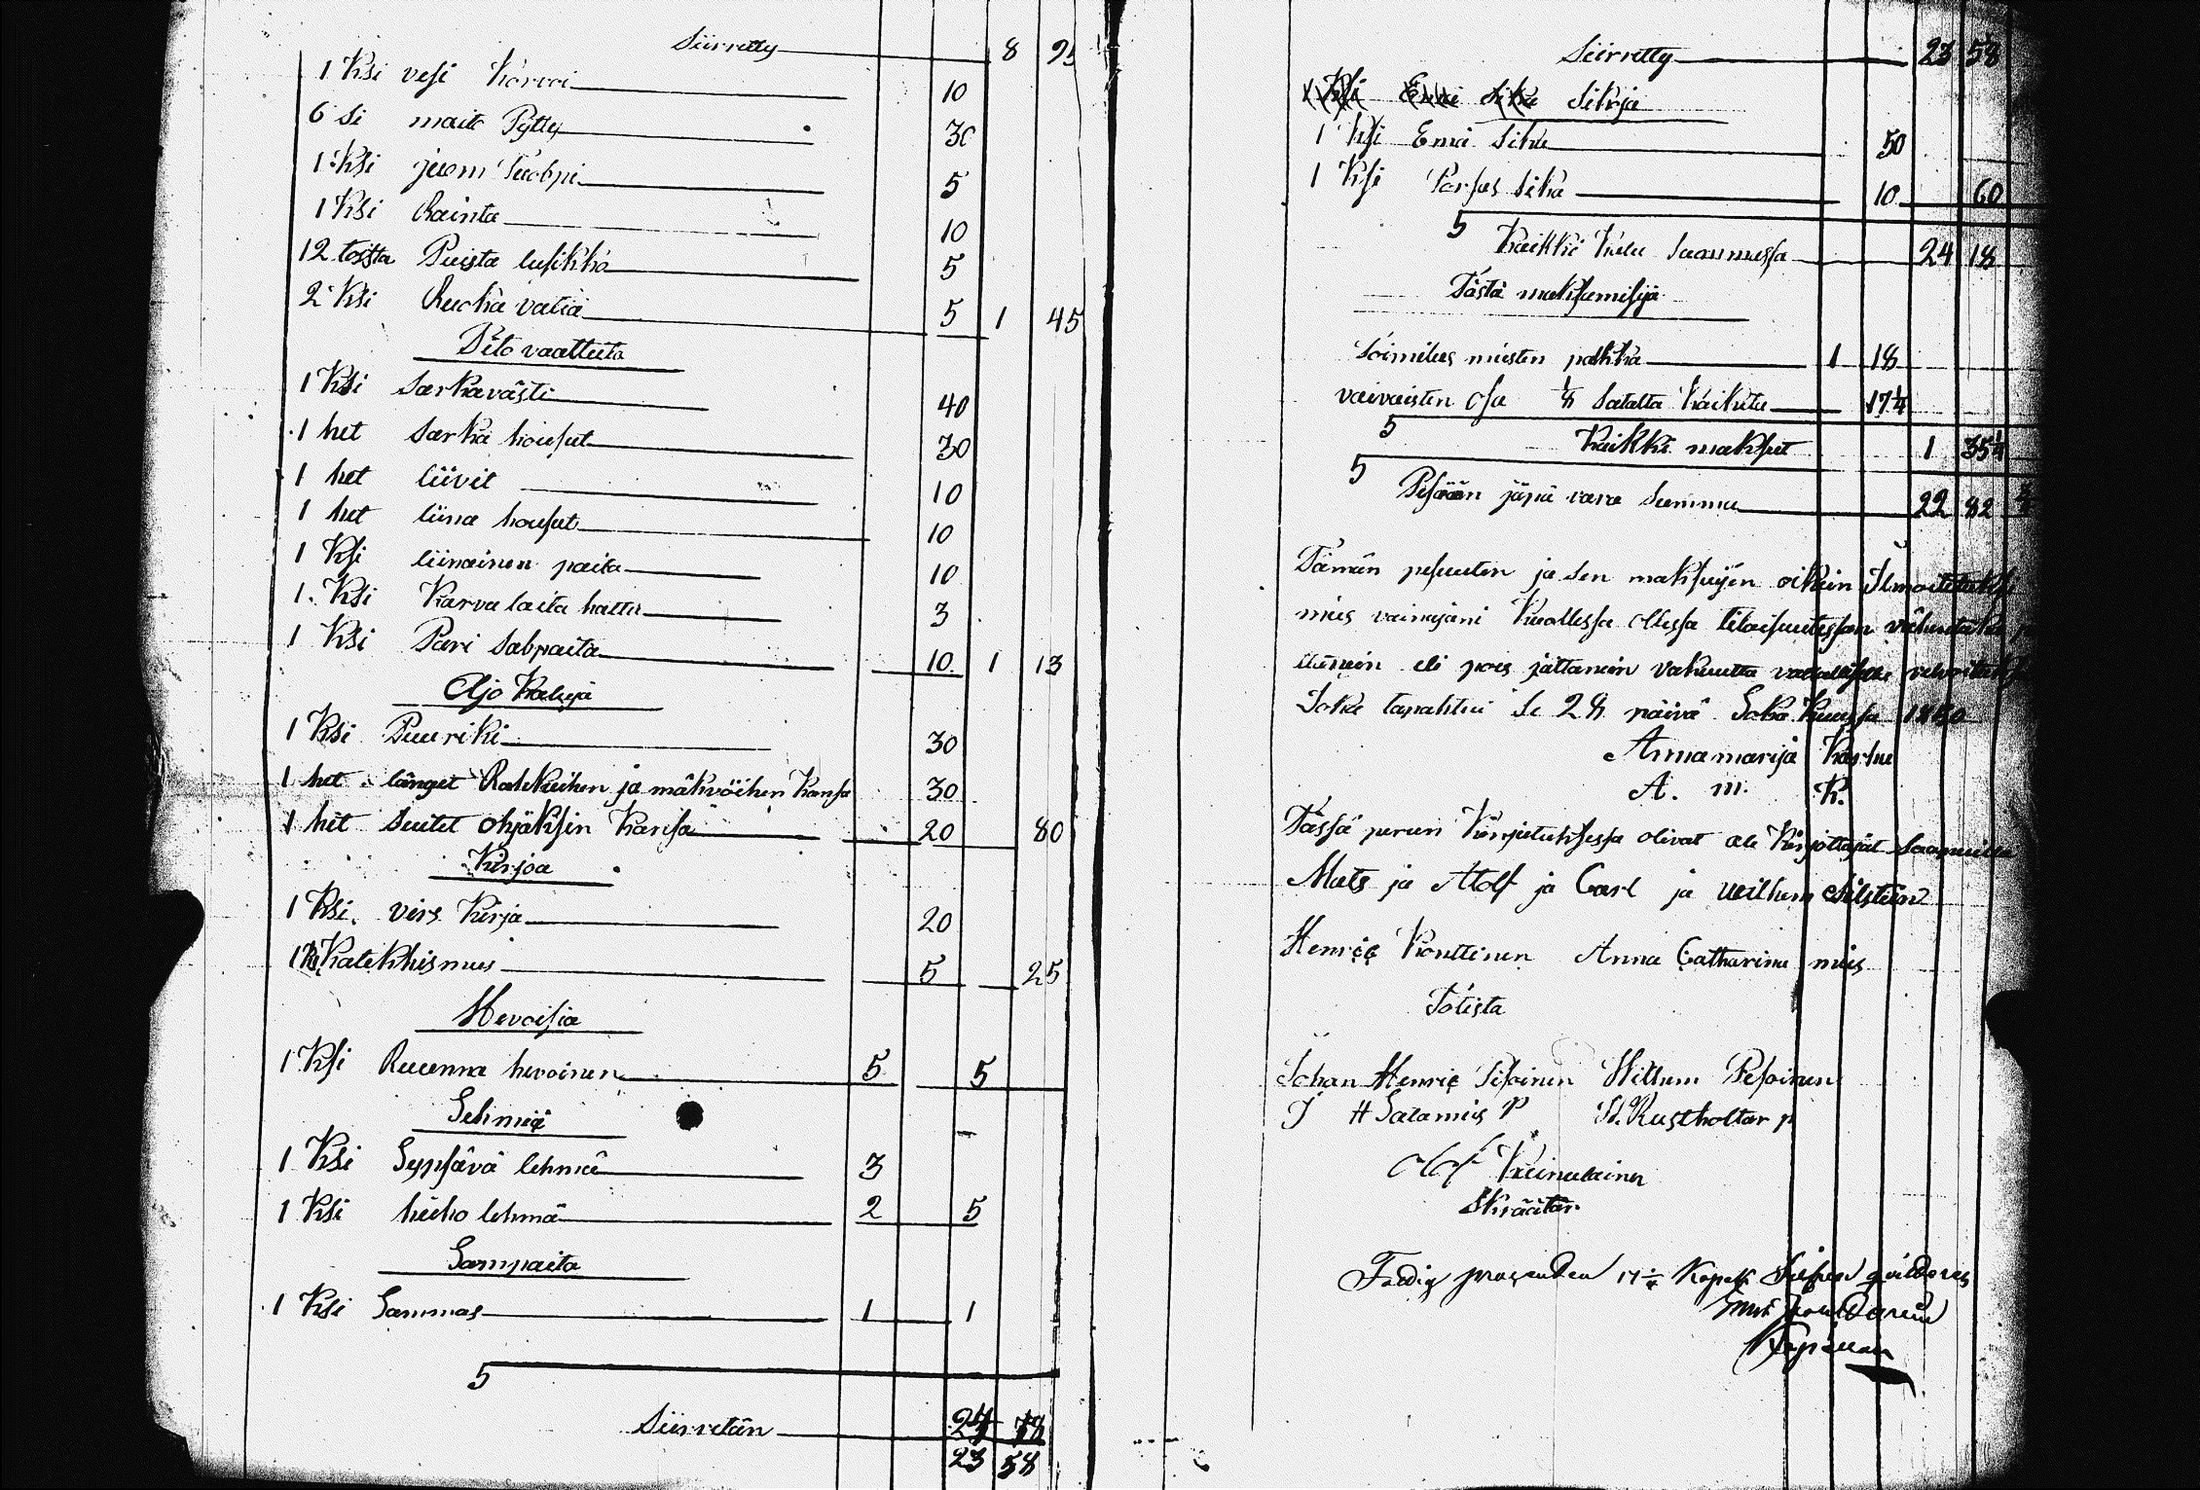 Siirretty 8 95
1 Ksi vesi korvoi 10
6 si maito Pytty 30
1 Ksi juom Tuobpi 5
1 Ksi Rainta 10
12 toista Puista lusikka 5
2 Ksi Ruoka vatia 5 1 45
Pito vaatteita
1 Ksi sarkavästi 40
1 het sarka housut 30
1 het liivit 10
1 het liina housut 10
1 Ksi liinainen paita 10
1 Ksi Karva laita hattu 3
1 Ksi Pari sabpaita 10 1 13
Ajo Kaluja
1 Ksi Puu riki 30
1 het länget Rahkeihen ja mäkvöihen Kansa 30
1 het suitet ohjaksin Kansa 20 80
Kirjoa
1 Ksi virs Kirja 20
1 K Katekhismus 5 25
Hevoisia
1 Ksi Ruuenna hevoinen 5 5
Lehmiä
1 Ksi Lypsävä lehmä 3
1 Ksi hieho lehmä 2 5
Lampaita
1 Ksi Lammas 1 1
5
Siirretän 24 18
23 58
Siirretty 23 58
1 Ksi Emi sika Sikoja
1 Ksi Emä Sika 50
1 Ksi Porsas Sika 10 60
5
Kaikki Kalu Summassa 24 18
Tästä maksamisija
Toimitus miesten palkka 1 18
vaivaisten Osa 1/8 Satalta Kaikista 17 1/4
5
Kaikki maksut 1 35 1/4
5
Pesään jäpä vara Summa 22 82
Tämän pesuuten ja sen maksujen oikein Ilmoitetuksi
mies vainajani Kuollessa Ollessa tilaisuutessan
eli pois jättämein vakuutta
Joka tapahtui se 28 päivä Loka Kuussa 1850
Annamarija Karhu
A. m. K.
Tässä perun Kirjutuksessa olivat ale Kirjottajat Saapuilla
Mats ja Atolf ja Carl ja Willum
Henric Konttinen Anna Catharina mies
Totista
Johan Henric Pesoinen Willum Pesoinen
J H Salamies P St. Rustholtar p
Olof Kainulainen
Skräätäri
Fattig procenten 17 1/4 Kopek Silfver qvitteras
Kapellan